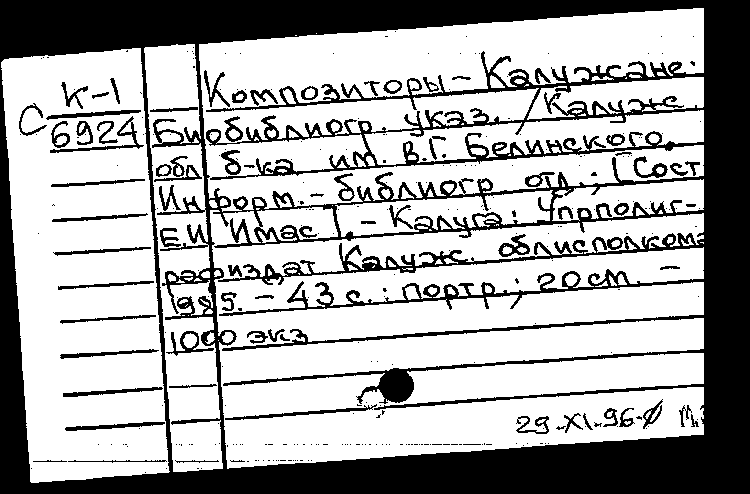 К-1
Композиторы - Калужане.
С 6924
Биобиблиогр. указ. / Калуж.
обл б-ка им. В.Г. Белинского.
Информ. - библиогр отд.; [Сост
Е.И. Имас]. - Калуга: Упрполиг-
рафиздат Калуж. облисполкома
1985. - 43 с.: портр.; 20 см. -
1000 экз
29.XI.96